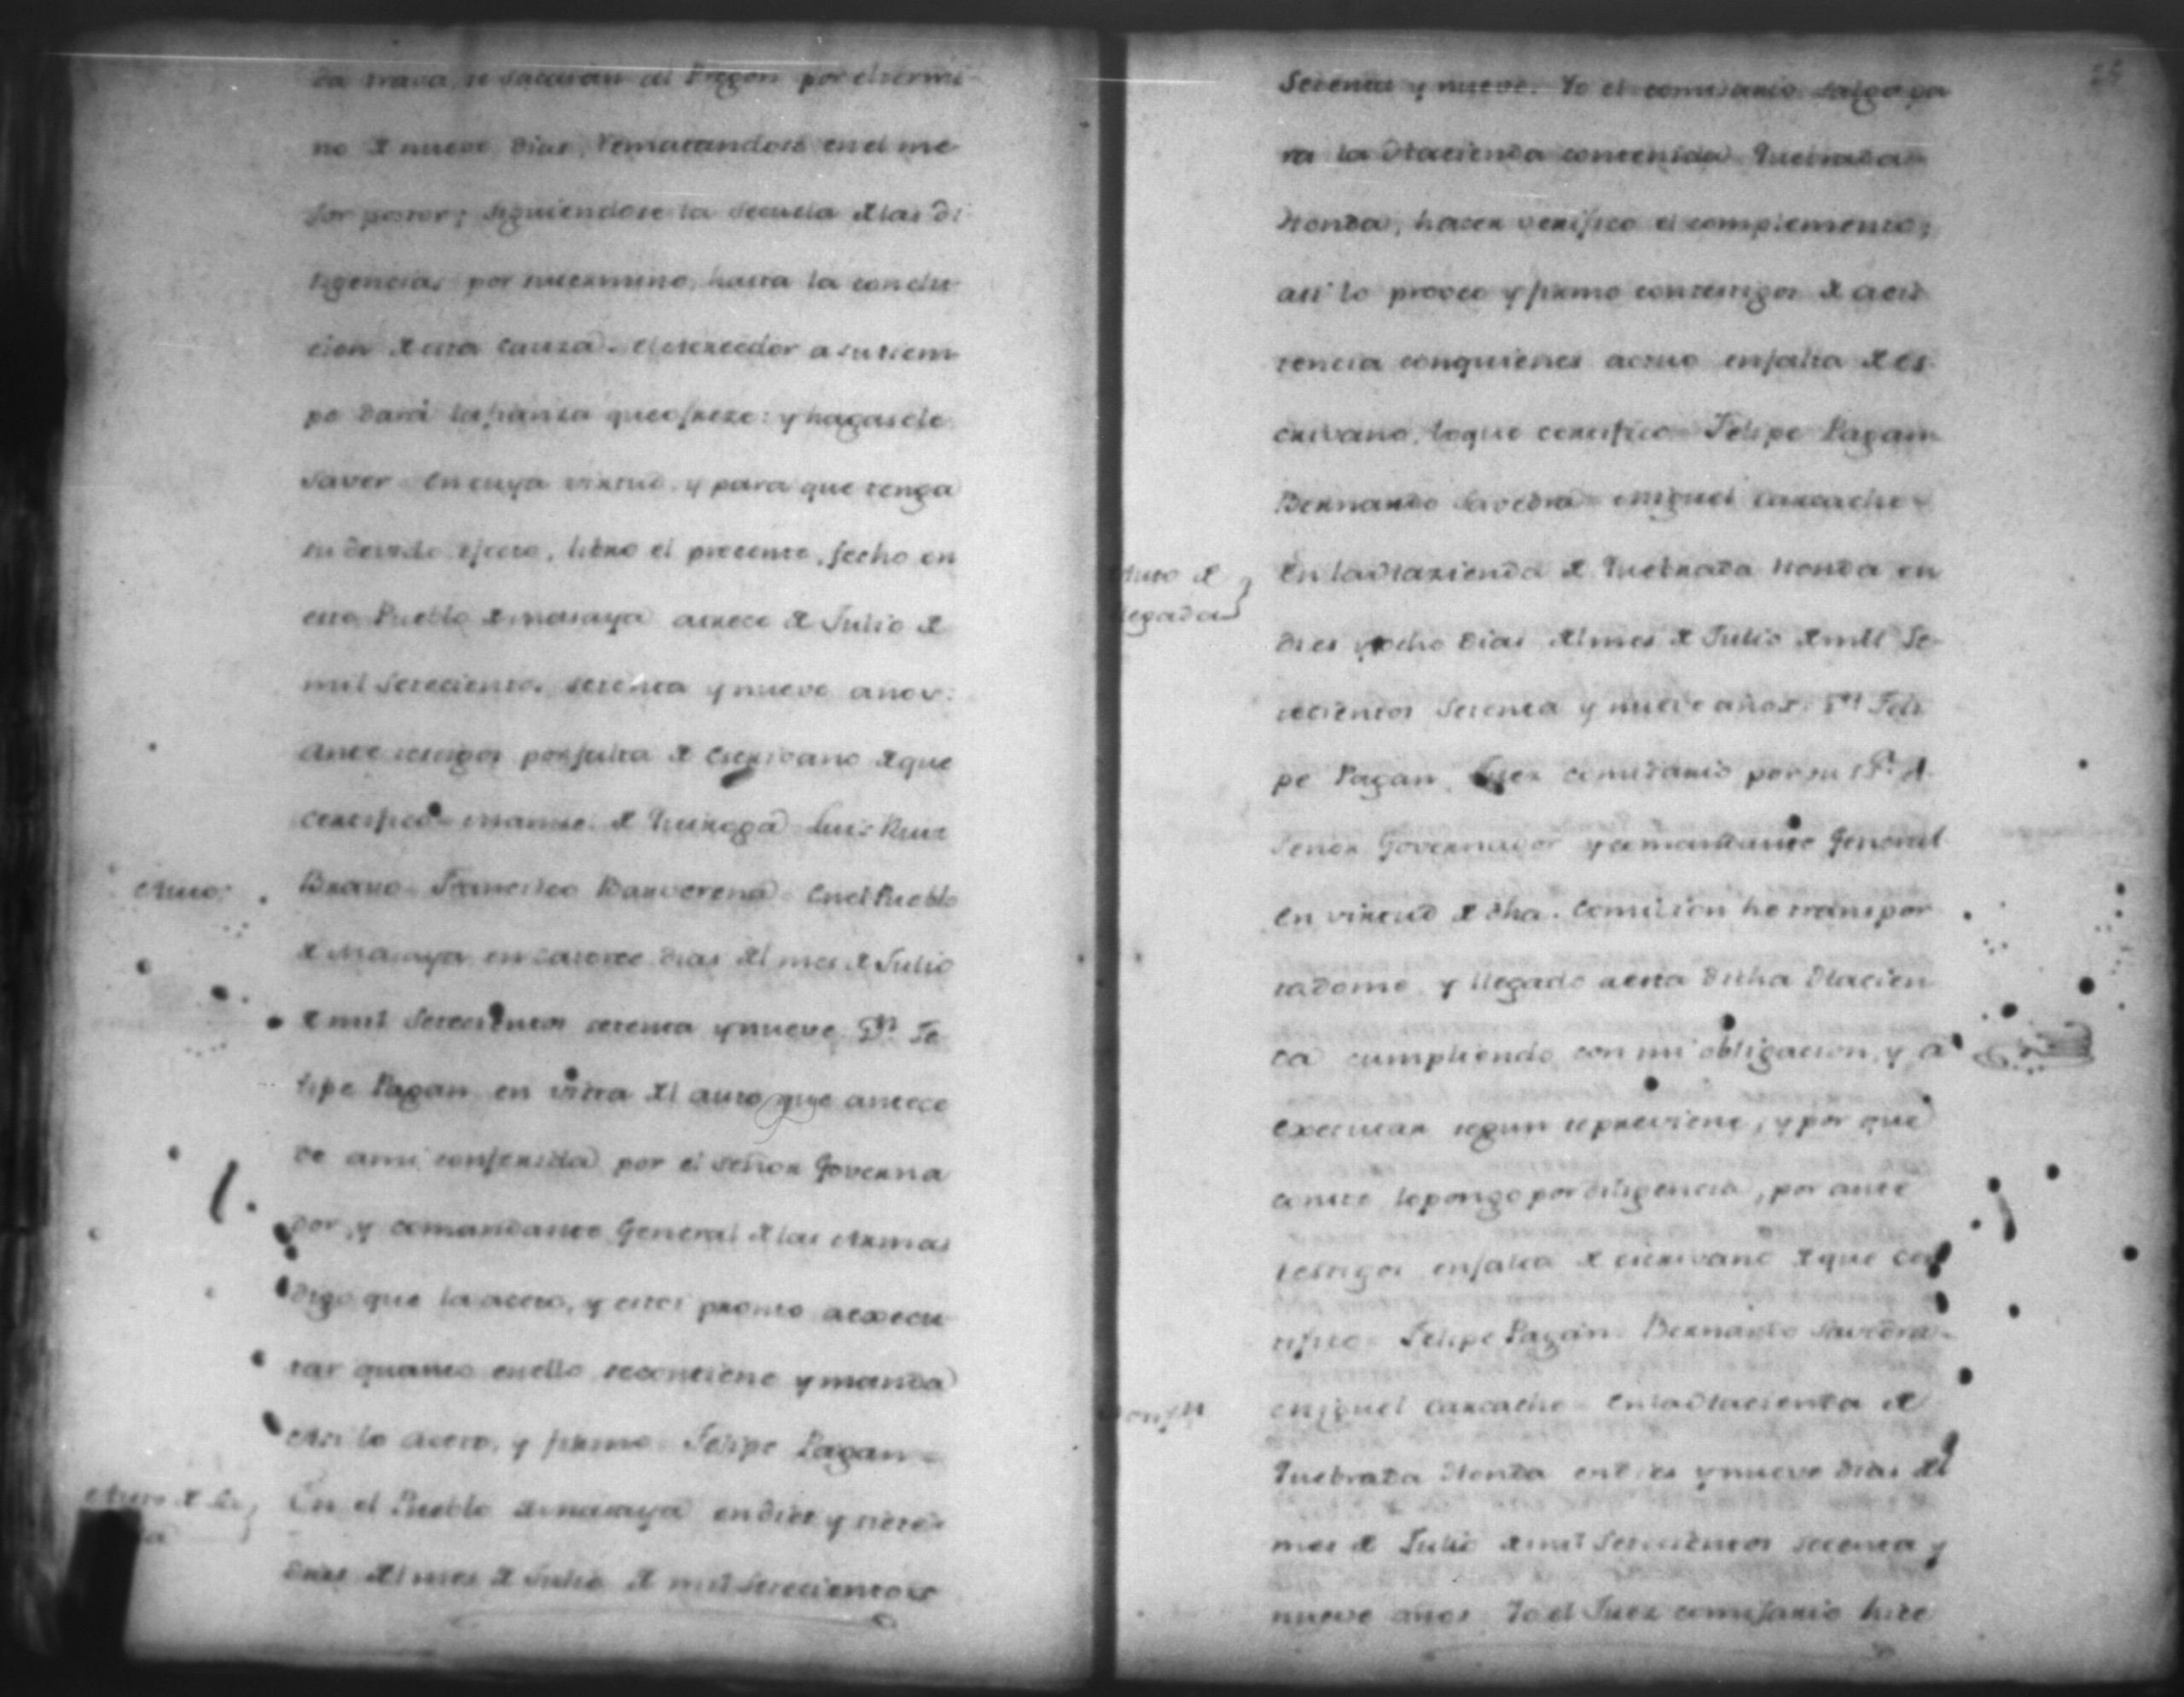 da trava, se sacarán al Pregon por el termi-
no de nueve dias, rematandose en el me-
jor postor; siguiendose la secuela de las di-
ligencias por su termino, hasta la conclu-
cion de esta causa. el acreedor a su tiem-
po dará la fianza que ofreze: y hagasele
saver. En cuya virtud, y para que tenga
su devido efecto, libro el presente, fecho en
este Pueblo de Masaya a trece de Julio de
mil setecientos setenta y nueve años:
Ante testigos por falta de Escrivano de que
certifico= Manuel de Quiroga= Luis Ruiz
Auto:
Bravo= Francisco Barverena= En el Pueblo
de Masaya en catorce dias del mes de Julio
de mil setecientos setenta y nueve Dn. Fe-
lipe Pagan en vista del auto que antece-
de a mi conferida por el señor Governa-
dor, y comandante General de las Armas
digo que la acepto, y estoi pronto a execu-
tar quanto en ello se contiene y manda
Asi lo acepto, y firmo= Felipe Pagan=
Auto de
En el Pueblo de Masaya en diez y siete
dias del mes de Julio de mil setecientos
setenta y nueve. Yo el comisario salgo pa-
ra la Hacienda contenida Quebrada
Honda, hacer verifico el complemento;
asi lo proveo y firmo con testigos de asis-
tencia con quienes actuo en falta de Es-
crivano, lo que certifico= Felipe Pagan=
Bernardo Savedra= Miguel Carcache=
Auto de
llegada
En la Hazienda de Quebrada Honda en
dies y ocho dias del mes de Julio de mil se-
tecientos setenta y nueve años. Dn. Feli-
pe Pagan Juez comisario por el
Señor Governador y comandante General
En virtud de dha. Comision he transpor-
tadome y llegado a esta dicha Hacien-
da cumpliendo con mi obligacion, y a
executar segun se previene, y por que
conste lo pongo por diligencia, por ante
testigos en falta de escrivano de que cer-
tifico= Felipe Pagan= Bernardo Savedra=
Miguel Carcache= En la Hacienda de
Quebrada Honda en dies y nueve dias del
mes de Julio de mil setecientos setenta y
nueve años Yo el Juez comisario hice